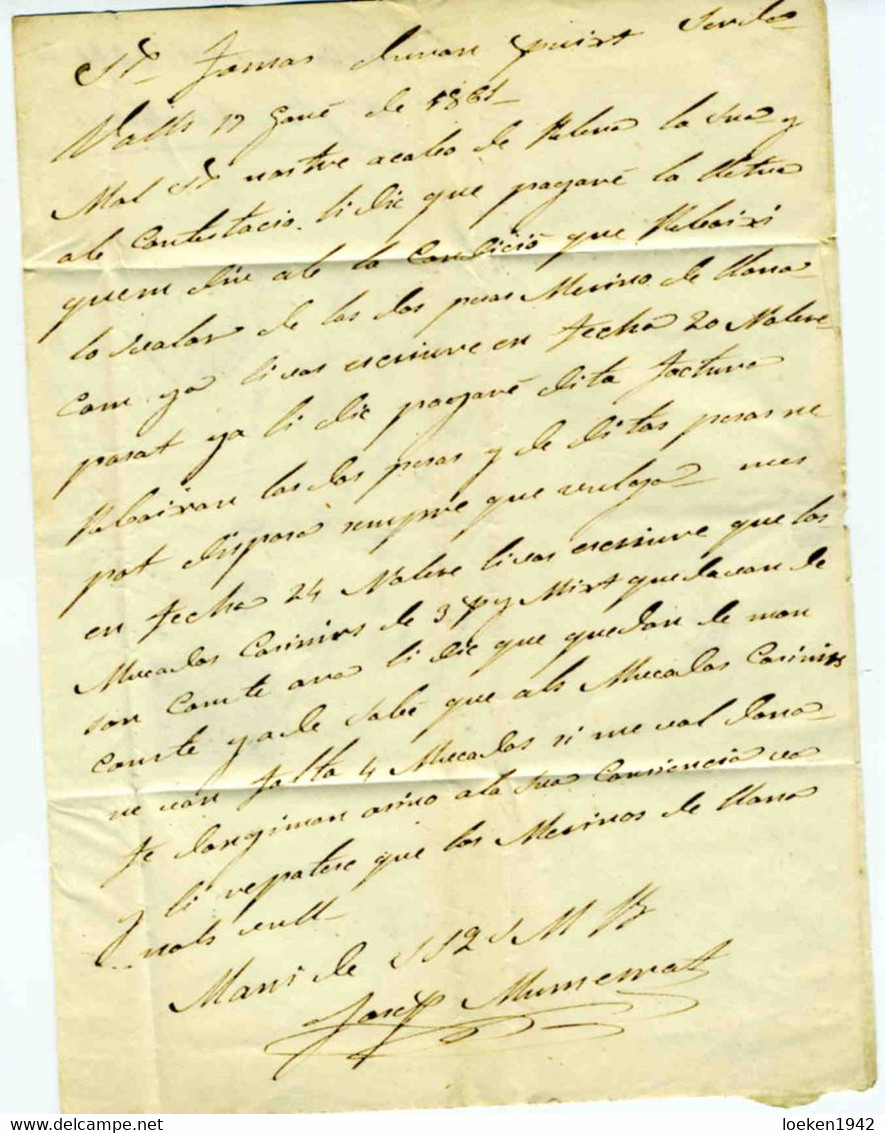 Sr. Tomas
Valls 17 Gané de 1861
Mol Sr. nostre acabo de Rebra la sua y
ab Contestacio li dic que pagaré la lletra
quem diu ab la Condició que Rebaixi
lo valor de las dos pesas Merino de llana
Com ya li vas escriure en fecha 20 Nobre
pasat ya li dic pagaré dita factura
Rebaixan las dos pesas y de ditas pesas ne
pot disposá sempre que vulga mes
en fecha 24 Nobre li vas escriure que los
Mucados Casimirs de 3 py Mixt quedavan de
son Comte ara li dic que quedan de mon
Comte ya de sabé que als Mucados Casimirs
ne van falta 4 Mucados si me vol dona
fe asino a la sua Consiencia va
y li repatese que los Merinos de llana
nols vull
Mani de SS2SMB
Joseph
loeken1942